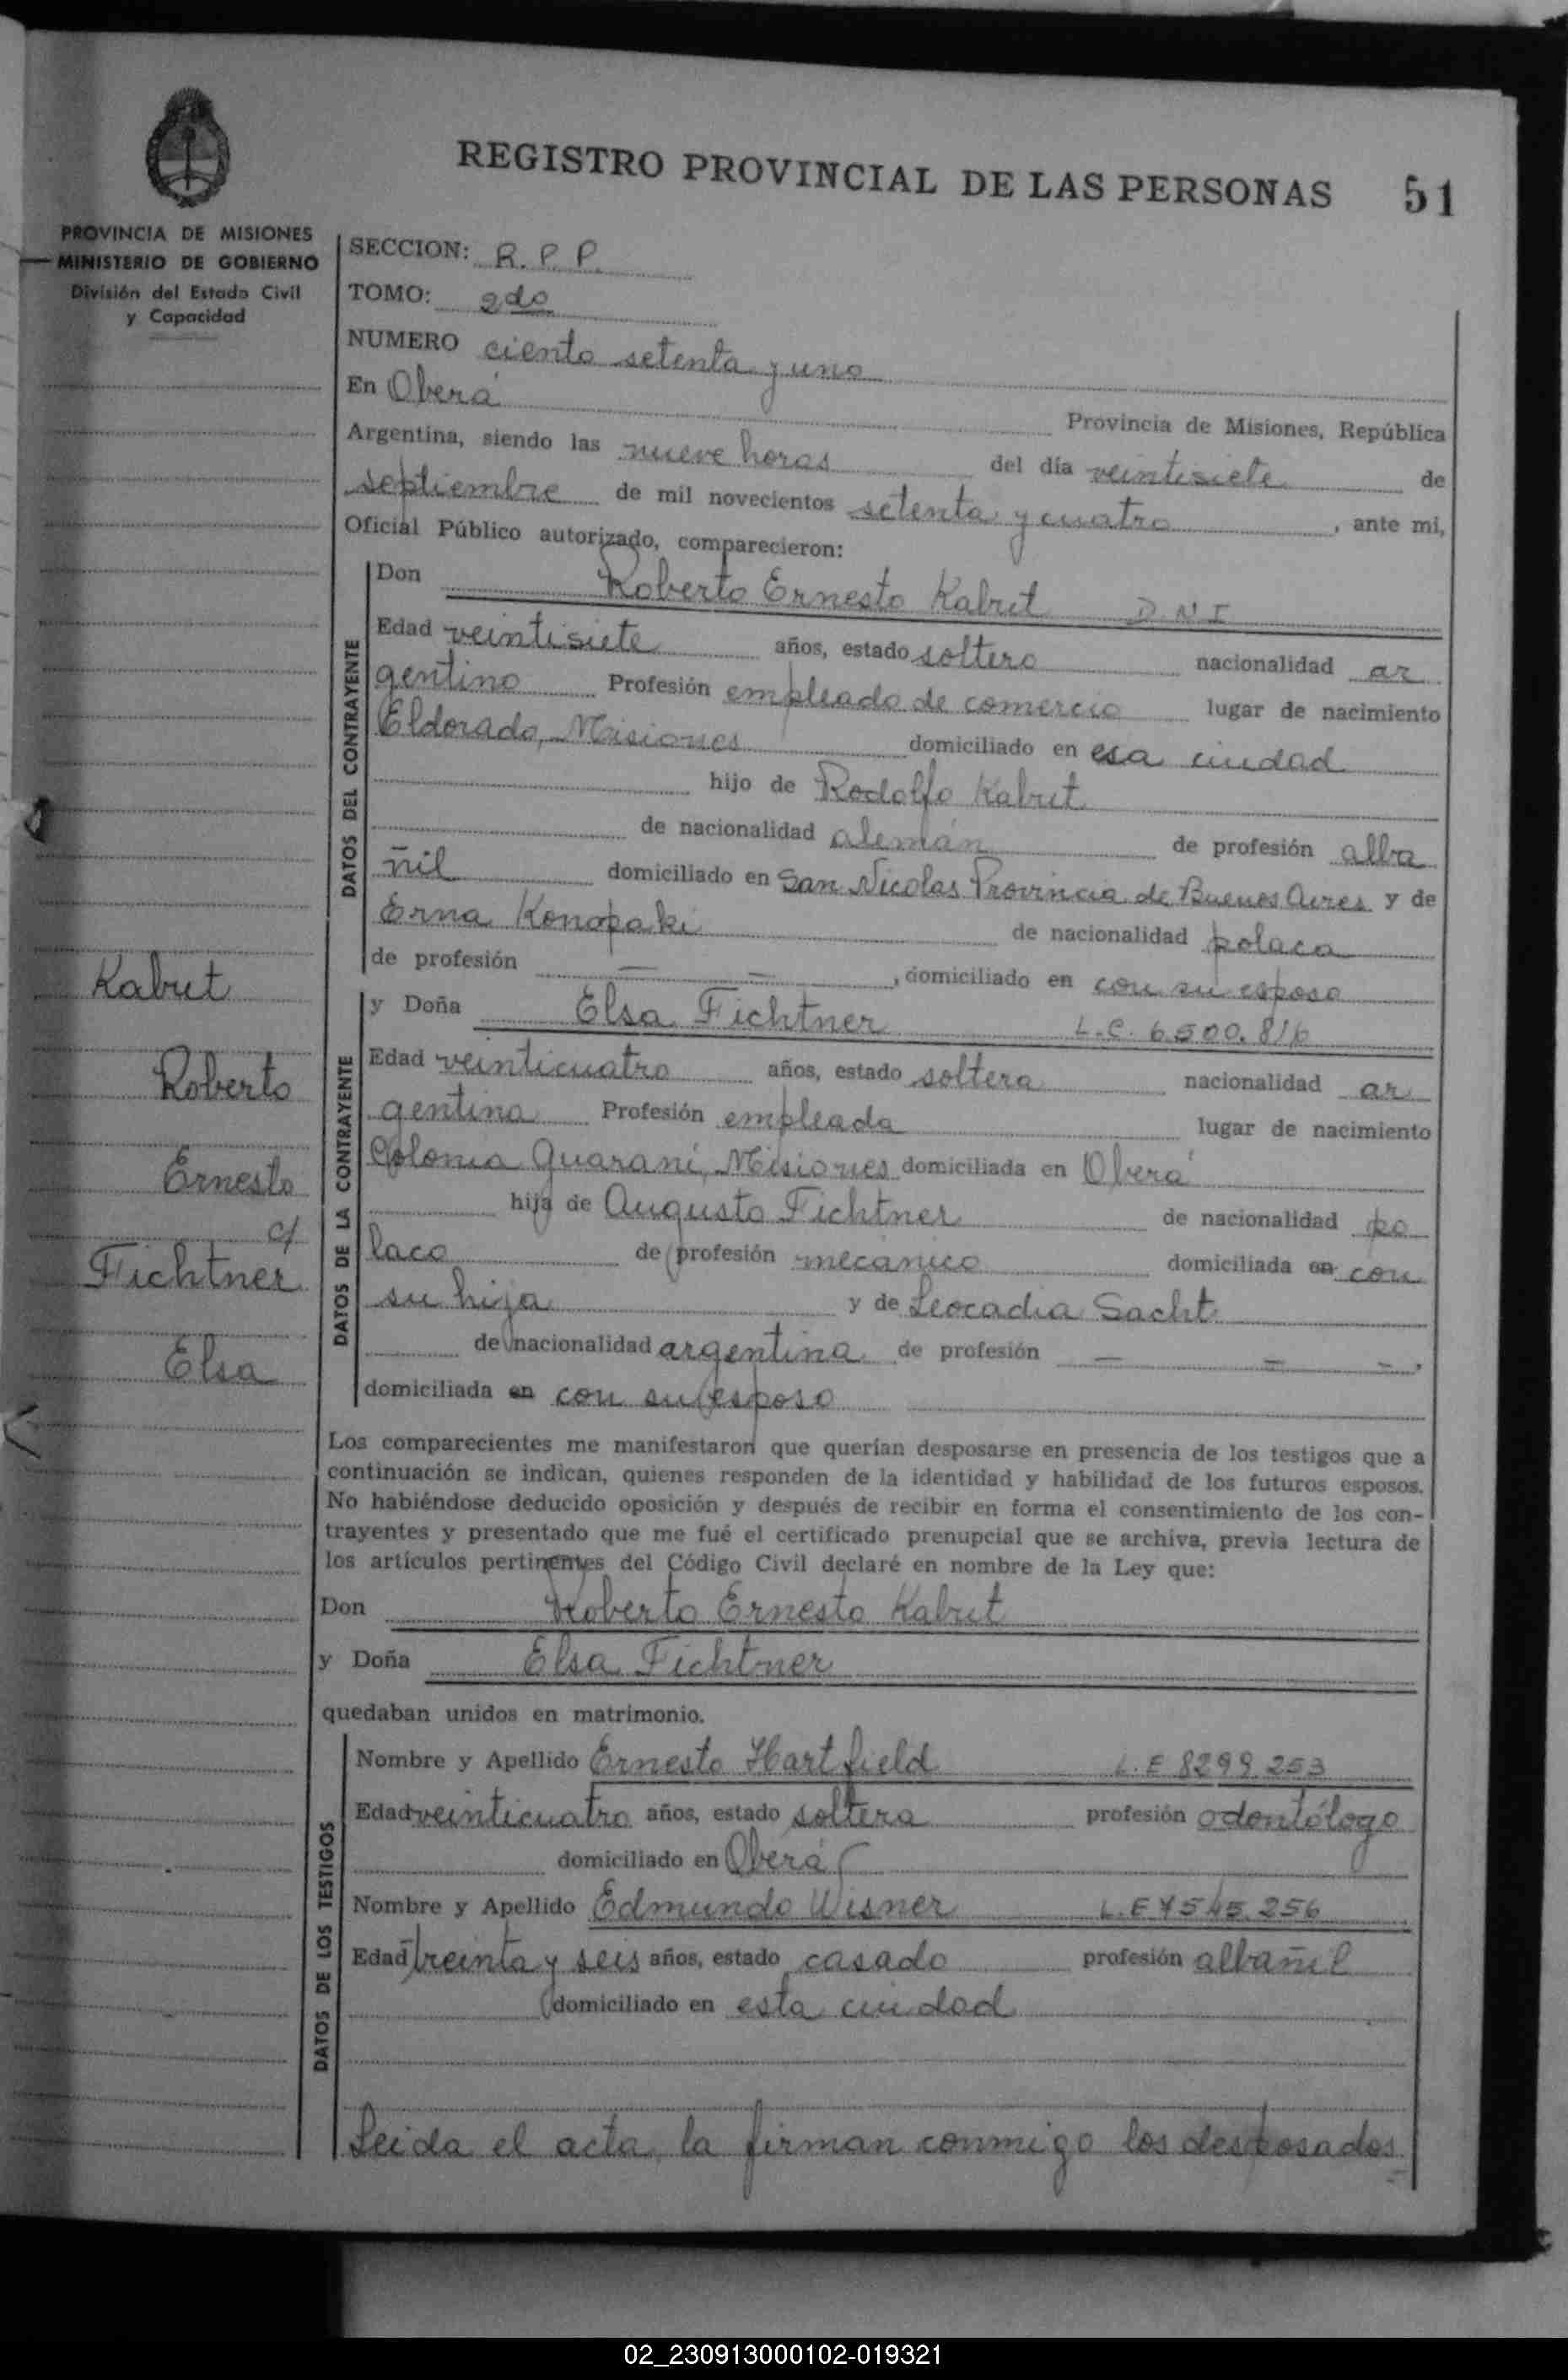 REGISTRO PROVINCIAL DE LAS PERSONAS 51
PROVINCIA DE MISIONES
MINISTERIO DE GOBIERNO
División del Estado Civil
y Capacidad
SECCION: R.P.P.
TOMO: 2do
NUMERO ciento setenta y uno
En Oberá Provincia de Misiones, República
Argentina, siendo las nueve horas del día veintisiete de
septiembre de mil novecientos setenta y cuatro, ante mi,
Oficial Público autorizado, comparecieron:
DATOS DEL CONTRAYENTE
Don Roberto Ernesto Kabut D.N.I
Edad veintisiete años, estado soltero nacionalidad ar
gentino Profesión empleado de comercio lugar de nacimiento
Eldorado, Misiones domiciliado en esa ciudad
hijo de Rodolfo Kabut
de nacionalidad alemán de profesión alba
ñil domiciliado en San Nicolas Provincia de Buenos Aires y de
Erna Konopaki de nacionalidad polaca
de profesión — — , domiciliado en con su esposo
DATOS DE LA CONTRAYENTE
y Doña Elsa Fichtner L.C. 6.500.816
Edad veinticuatro años, estado soltera nacionalidad ar
gentina Profesión empleada lugar de nacimiento
Colonia Guaraní, Misiones domiciliada en Oberá
hija de Augusto Fichtner de nacionalidad po
laco de profesión mecánico domiciliada en con
su hija y de Leocadia Sacht
de nacionalidad argentina de profesión — — -,
domiciliada en con su esposo
Kabut
Roberto
Ernesto
c/
Fichtner
Elsa
Los comparecientes me manifestaron que querían desposarse en presencia de los testigos que a
continuación se indican, quienes responden de la identidad y habilidad de los futuros esposos.
No habiéndose deducido oposición y después de recibir en forma el consentimiento de los con-
trayentes y presentado que me fué el certificado prenupcial que se archiva, previa lectura de
los artículos pertinentes del Código Civil declaré en nombre de la Ley que:
Don Roberto Ernesto Kabut
y Doña Elsa Fichtner
quedaban unidos en matrimonio.
DATOS DE LOS TESTIGOS
Nombre y Apellido Ernesto Hartfield L.E 8299.253
Edad veinticuatro años, estado soltero profesión odontólogo
domiciliado en Oberá
Nombre y Apellido Edmundo Wisner L.E 7545.256
Edad treinta y seis años, estado casado profesión albañil
domiciliado en esta ciudad
Leida el acta, la firman conmigo los desposados
02_230913000102-019321